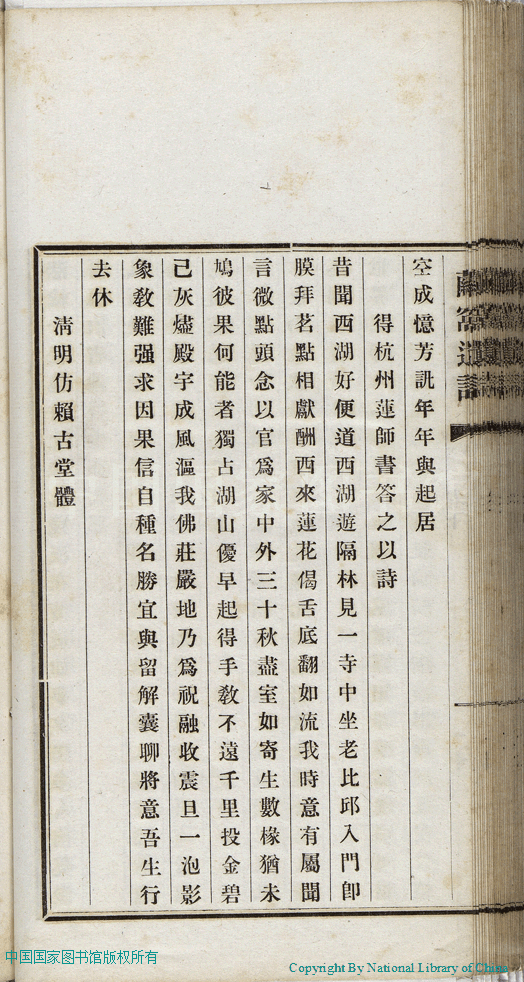 空成憶芳訊年年與起居
得杭州蓮師書答之以詩
昔聞西湖好便道西湖遊隔林見一寺中坐老比邱入門卽
膜拜茗點相獻酬西來蓮花偈舌底翻如流我時意有屬聞
言微點頭念以官爲家中外三十秋盡室如寄生數椽猶未
鳩彼果何能者獨占湖山優早起得手敎不遠千里投金碧
已灰燼殿宇成風漚我佛莊嚴地乃爲祝融收震旦一泡影
象敎難强求因果信自種名勝宜與留解囊聊將意吾生行
去休
淸明仿賴古堂體
中国国家图书馆版权所有
Copyright By National Library of China